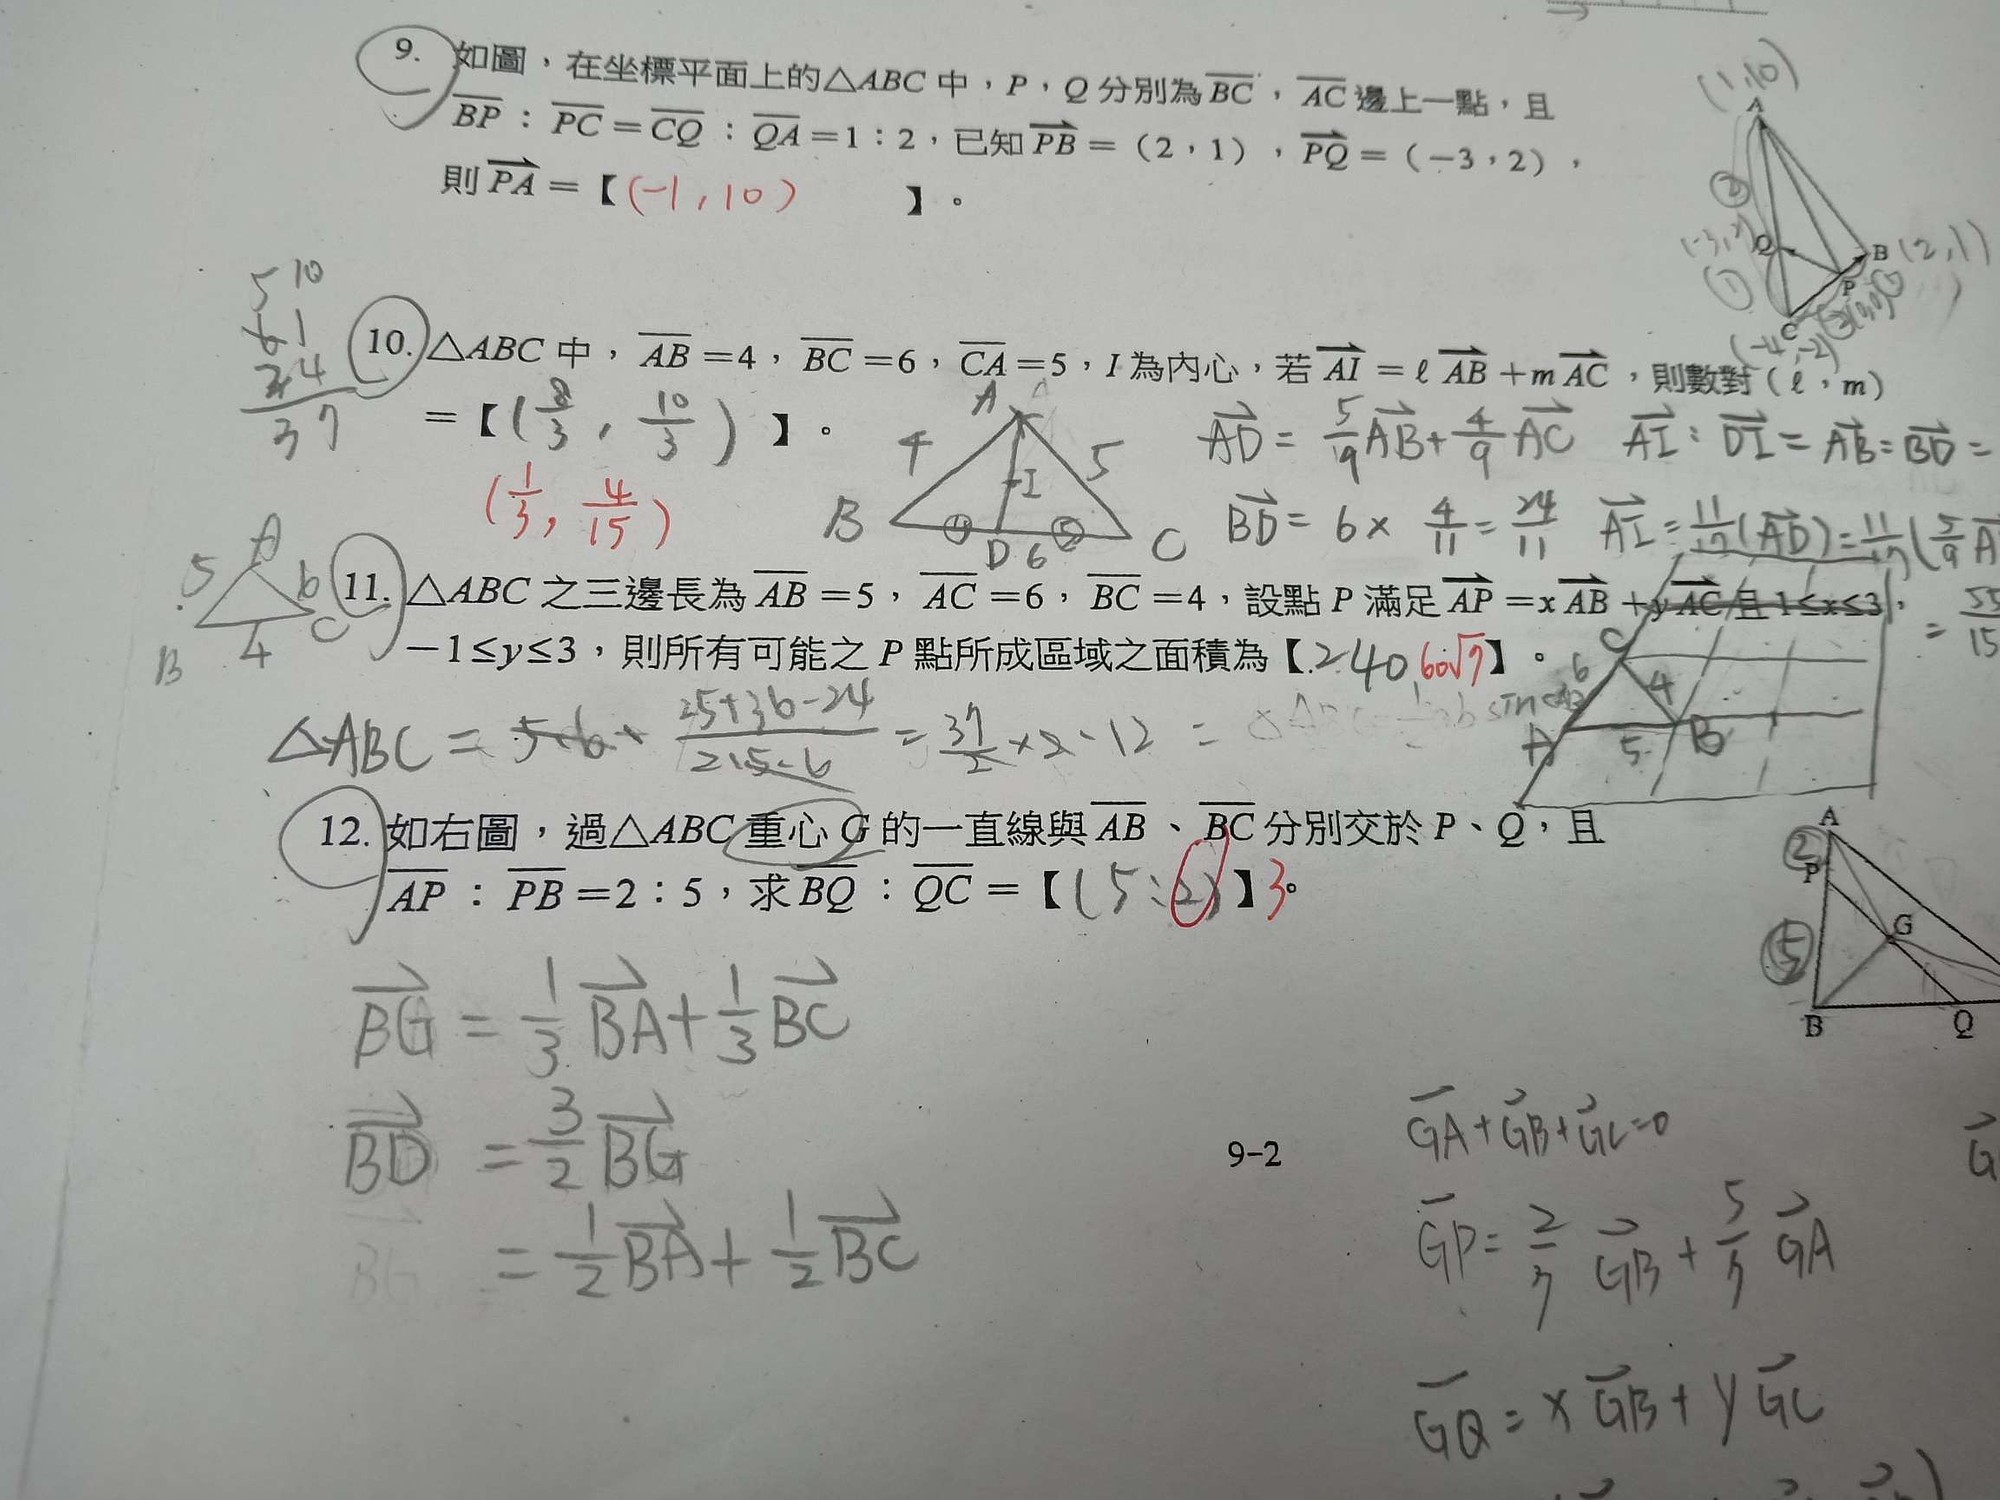 9. 如圖，在坐標平面上的△ABC中，P，Q分別為BC，AC邊上一點，且
BP：PC＝CQ：QA＝1：2，已知PB＝（2，1），PQ＝（－3，2），
則PA＝【(-1,10)】。
(1,10)
A
②
(-3,2)
Q
B (2,1)
①
P
C
(-4,-2)
5 10
6 1
2 4
3 7
10. △ABC中，AB＝4，BC＝6，CA＝5，I為內心，若AI＝ℓAB＋mAC，則數對（ℓ，m）
＝【(8/3, 10/3)】。
(1/3, 4/15)
A
4
5
I
B
④
D
6
⑤
C
AD = 5/9 AB + 4/9 AC
AI : DI = AB : BD =
BD = 6 × 4/11 = 24/11
A
5
6
B
4
C
11. △ABC之三邊長為AB＝5，AC＝6，BC＝4，設點P滿足AP＝xAB＋yAC且1≤x≤3，
－1≤y≤3，則所有可能之P點所成區域之面積為【240 60√7】。
= 55/15
C
6
4
A
5
B
△ABC = 5·6× (25+36-24)/(2·5·6) = 37/2
12. 如右圖，過△ABC重心G的一直線與AB、BC分別交於P、Q，且
AP：PB＝2：5，求BQ：QC＝【(5:2)】3。
A
②
P
G
⑤
B
Q
BG = 1/3 BA + 1/3 BC
BD = 3/2 BG
= 1/2 BA + 1/2 BC
BG
9-2
GA + GB + GC = 0
GP = 2/7 GB + 5/7 GA
GQ = x GB + y GC